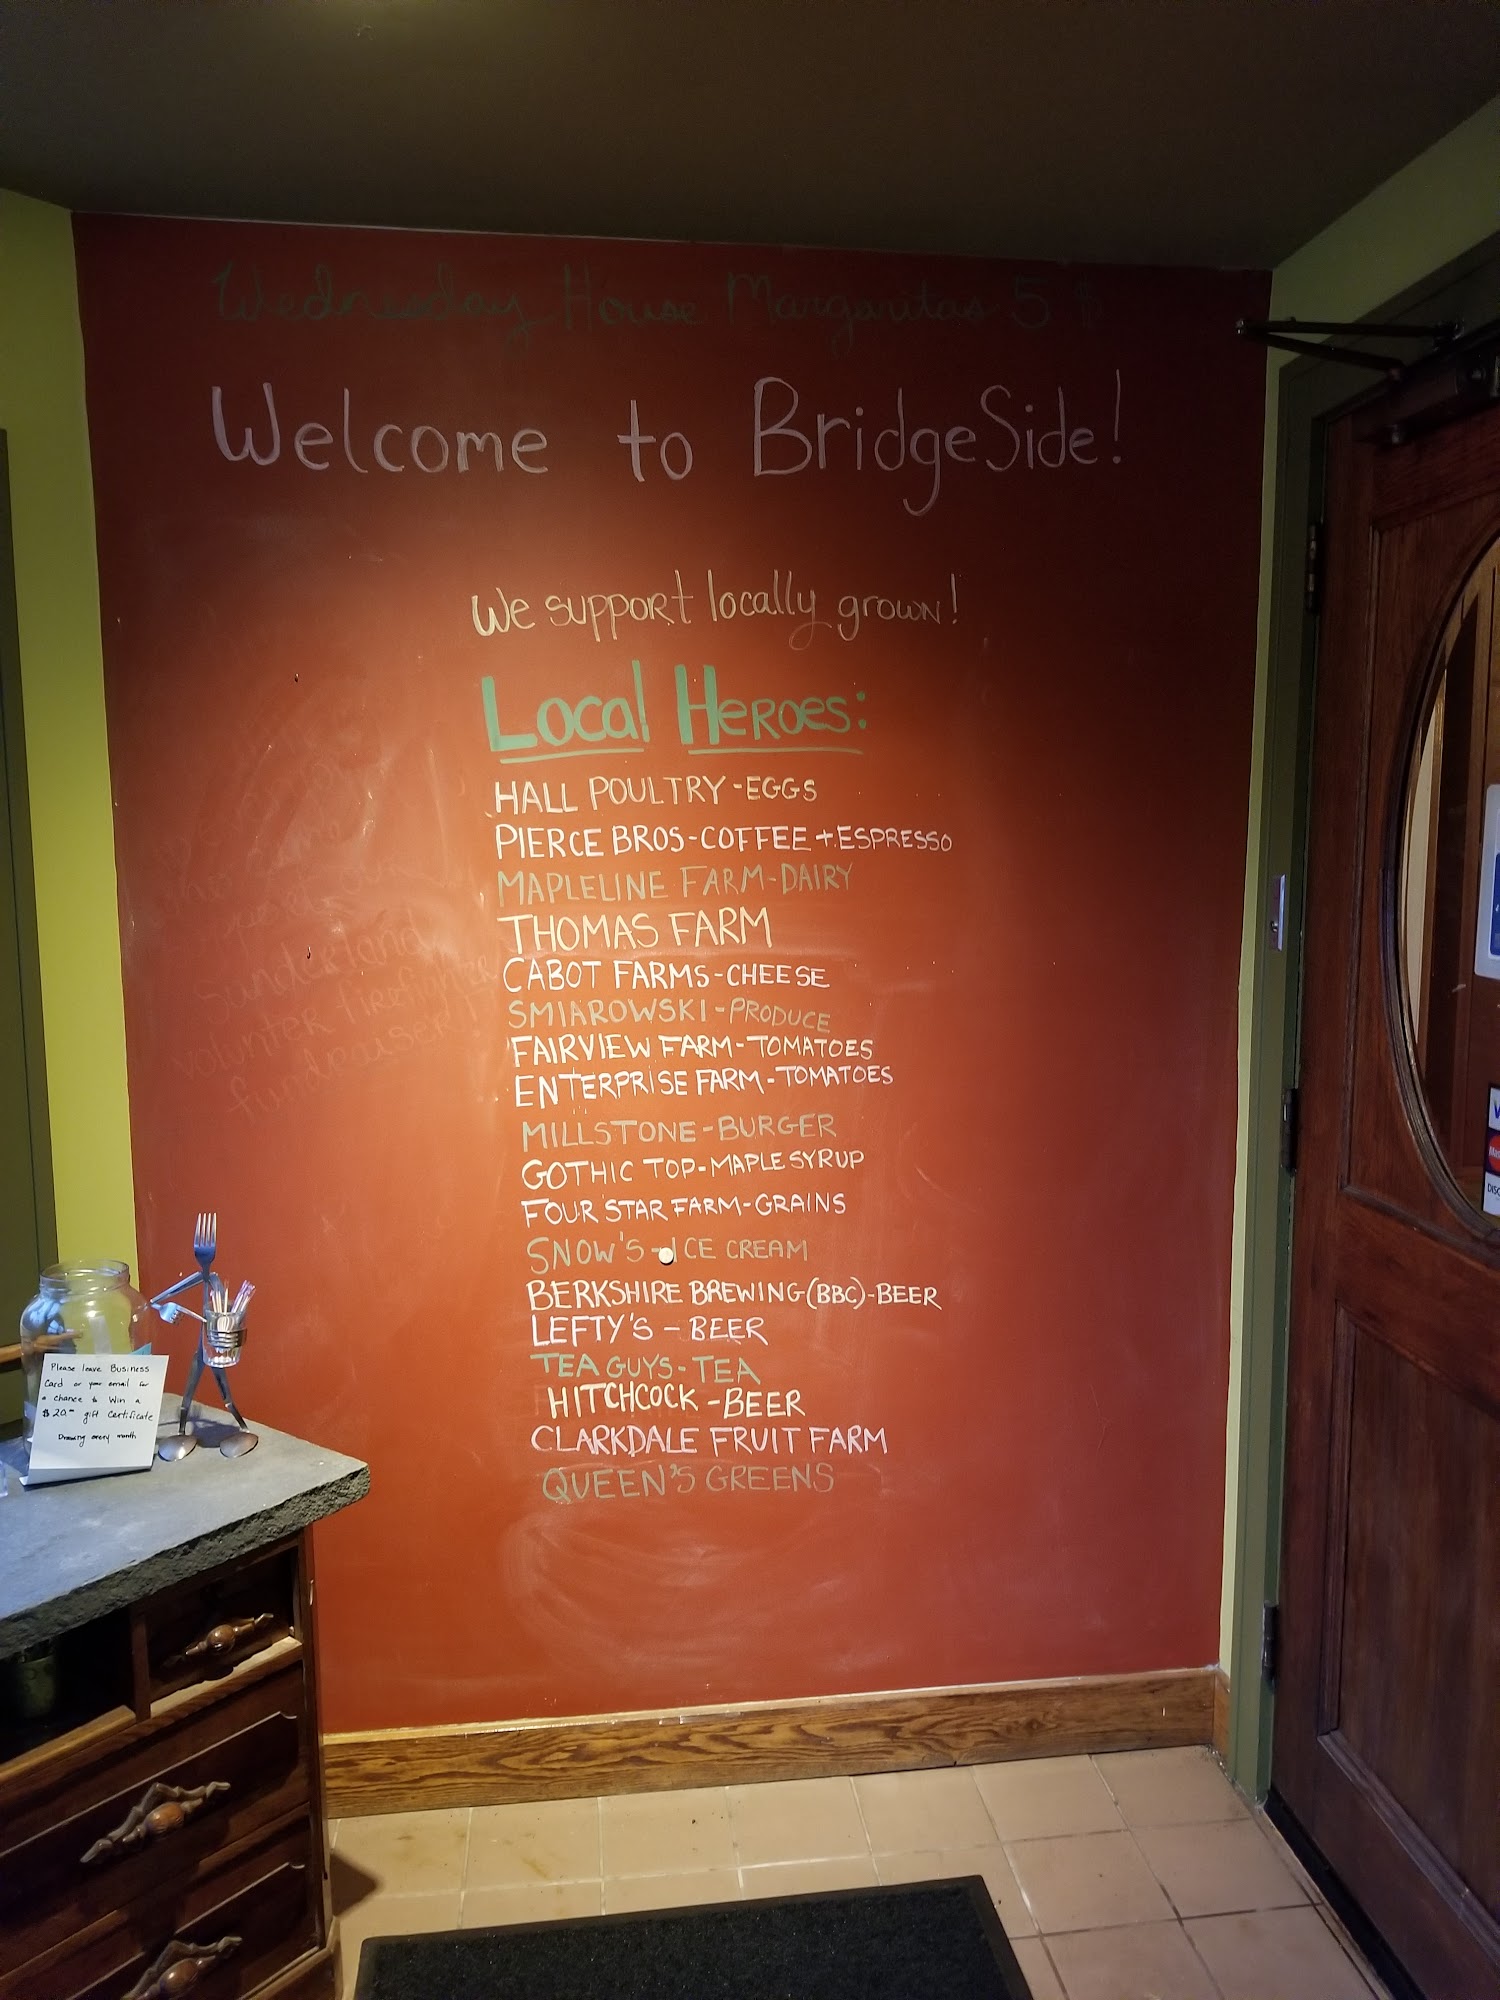 Wednesday House Margaritas 5 $
Welcome to BridgeSide!
We support locally grown!
Local Heroes:
HALL POULTRY-EGGS
PIERCE BROS-COFFEE + ESPRESSO
MAPLELINE FARM-DAIRY
THOMAS FARM
CABOT FARMS-CHEESE
SMIAROWSKI-PRODUCE
FAIRVIEW FARM-TOMATOES
ENTERPRISE FARM-TOMATOES
MILLSTONE-BURGER
GOTHIC TOP-MAPLE SYRUP
FOUR STAR FARM-GRAINS
SNOW'S-ICE CREAM
BERKSHIRE BREWING(BBC)-BEER
LEFTY'S-BEER
TEA GUYS-TEA
HITCHCOCK-BEER
CLARKDALE FRUIT FARM
QUEEN'S GREENS
Sunderland
volunter firefighter
fundraiser!
Please leave Business
Card or your email for
a chance to Win a
$20.- gift certificate
Drawing every month